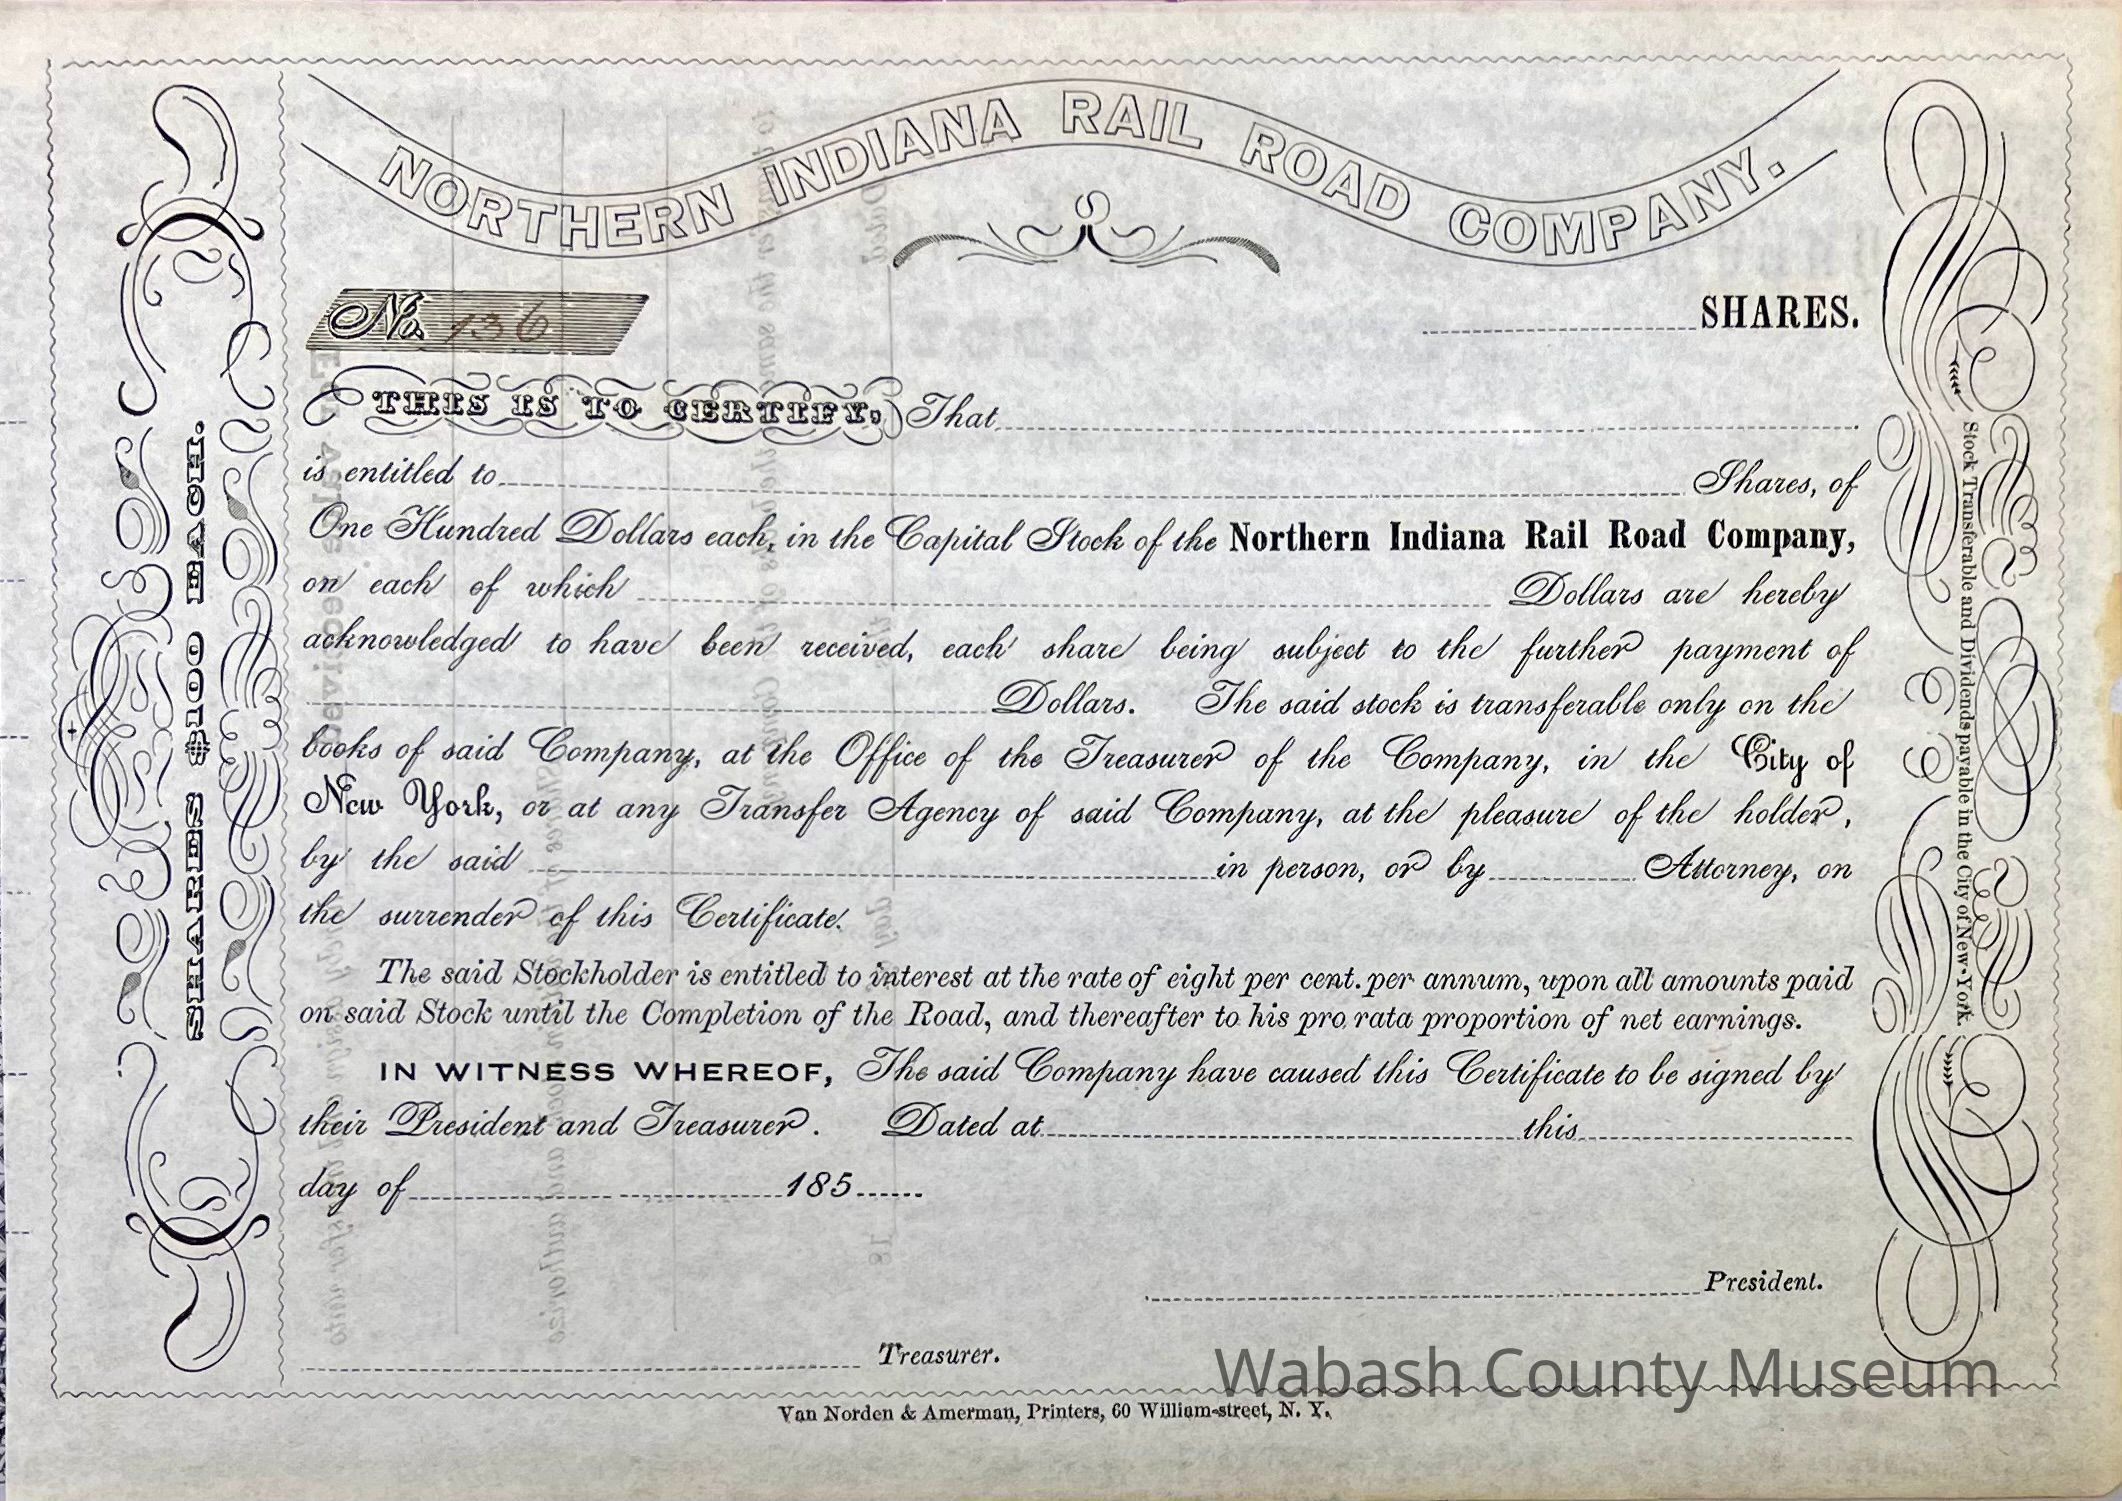 NORTHERN INDIANA RAIL ROAD COMPANY.
No. 136
SHARES.
THIS IS TO CERTIFY, That
is entitled to Shares, of
One Hundred Dollars each, in the Capital Stock of the Northern Indiana Rail Road Company,
on each of which Dollars are hereby
acknowledged to have been received, each share being subject to the further payment of
Dollars. The said stock is transferable only on the
books of said Company, at the Office of the Treasurer of the Company, in the City of
New York, or at any Transfer Agency of said Company, at the pleasure of the holder,
by the said in person, or by Attorney, on
the surrender of this Certificate.
The said Stockholder is entitled to interest at the rate of eight per cent. per annum, upon all amounts paid
on said Stock until the Completion of the Road, and thereafter to his pro rata proportion of net earnings.
IN WITNESS WHEREOF, The said Company have caused this Certificate to be signed by
their President and Treasurer. Dated at this
day of 185
President.
Treasurer.
Van Norden & Amerman, Printers, 60 William-street, N. Y.
SHARES $100 EACH.
Stock Transferable and Dividends payable in the City of New-York.
Wabash County Museum